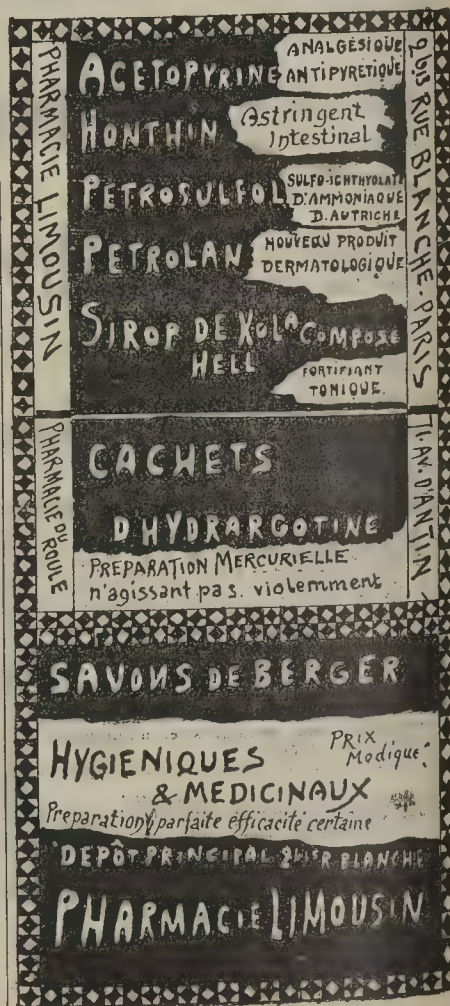 PHARMACIE LIMOUSIN
ACETOPYRINE
ANALGÉSIQUE
ANTIPYRETIQUE
HONTHIN
Astringent
Intestinal
PETROSULFOL
SULFO-ICHTHYOLATE
D'AMMONIAQUE
D'AUTRICHE
PETROLAN
NOUVEAU PRODUIT
DERMATOLOGIQUE
SIROP DE KOLA COMPOSÉ
HELL
FORTIFIANT
TONIQUE.
2 bis RUE BLANCHE-PARIS
PHARMACIE DU
ROULE
CACHETS
D'HYDRARGOTINE
PREPARATION MERCURIELLE
n'agissant pas. violemment
71. AV. D'ANTIN
SAVONS DE BERGER
HYGIENIQUES
& MEDICINAUX
PRIX
Modique
Preparation parfaite éfficacité certaine
DEPÔT PRINCIPAL 2bis R. BLANCHE
PHARMACIE LIMOUSIN